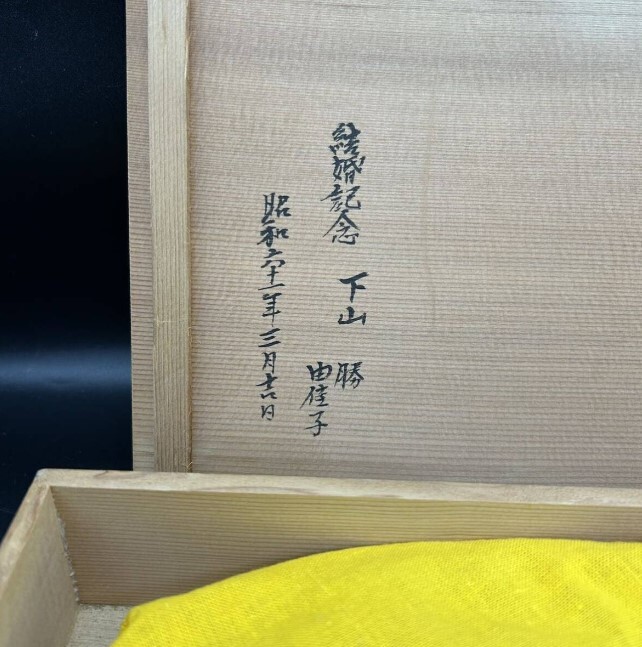 結婚記念 下山 勝
由佳子
昭和六十一年三月吉日